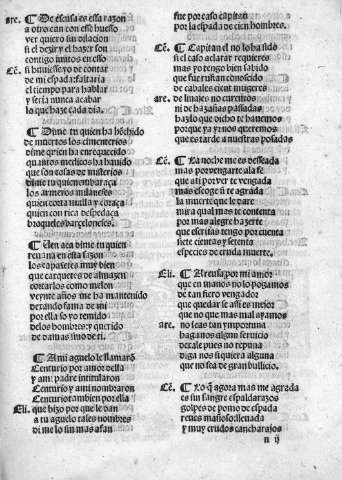 are. ¶ De escusa es essa razon
a otro can con esse huesso
ver quiero sin relacion
si el dezir y el hazer son
contigo juntos en esso
Cē. si huuiesse yo de contar
de mi espada: faltaria
el tiempo para hablar
y seria nunca acabar
lo que haze cada dia.
¶ Dime tu quien ha hēchido
de muertos los cimenterios
dime quien ha enrrequecido
quantos medicos ha hauido
que son cosas de misterios
dime tu quien emburaça
los armeros milaneses
quien corta malla y coraça
quien con rica
broqueles barceloneses.
¶ Uen aca dime tu quien
en esta sazon
los capaçetes muy bien
que carquetes de almazen
cortarlos como melon
veynte años me ha mantenido
derando fama de mi
por ella so yo temido
delos hombres: y querido
de damas uno de ti.
¶ A mi aguelo le llamarō
Centurio por amor della
y a mi padre intitularon
Centurio y ami nombraron
Centurio tambien por ella
Eli. que hizo por que le dan
a tu aguelo tales nombres
di me lo sin mas afan
fue por caso capitan
por la espada de cien hombres.
Cē. ¶ Capitan el no lo ha sido
si el caso aclarar requieres
mas yo tengo bien sabido
que fue rufian conoscido
de cabales cient mugeres
are. de linaje no curemos
ni de hazañas passadas
haz lo que dicho te hauemos
porque ya yrnos queremos
que es tarde a nuestras posadas
Cē. ¶ La noche me es desseada
mas por vengarte ala fe
que a ti por ver te vengada
mas escoge si te agrada
la muerte que le dare
mira qual mas te contenta
por mas alegre hazerte
que escritas tengo por cuenta
siete cientas y setenta
especies de cruda muerte.
Eli. ¶ Areusa por mi amor
que en manos no lo pogamos
de tan fiero vengador
que quedar se assi es mejor
que no que mas mal ayamos
are. no seas tan ymportuna
haganos algun seruicio
dexale pues no repuna
diga nos siquiera alguna
que no sea de gran bullicio.
Cē. ¶ Lo q̄ agora mas me agrada
es sin sangre espaldarazos
golpes de pomo de espada
reues mañoso: llenada
y muy crudos cancharajos
n ij